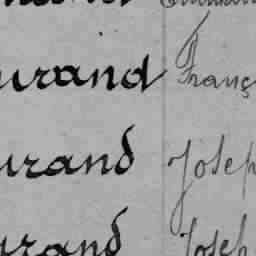 urand Franç
urand Josep
urand Josep